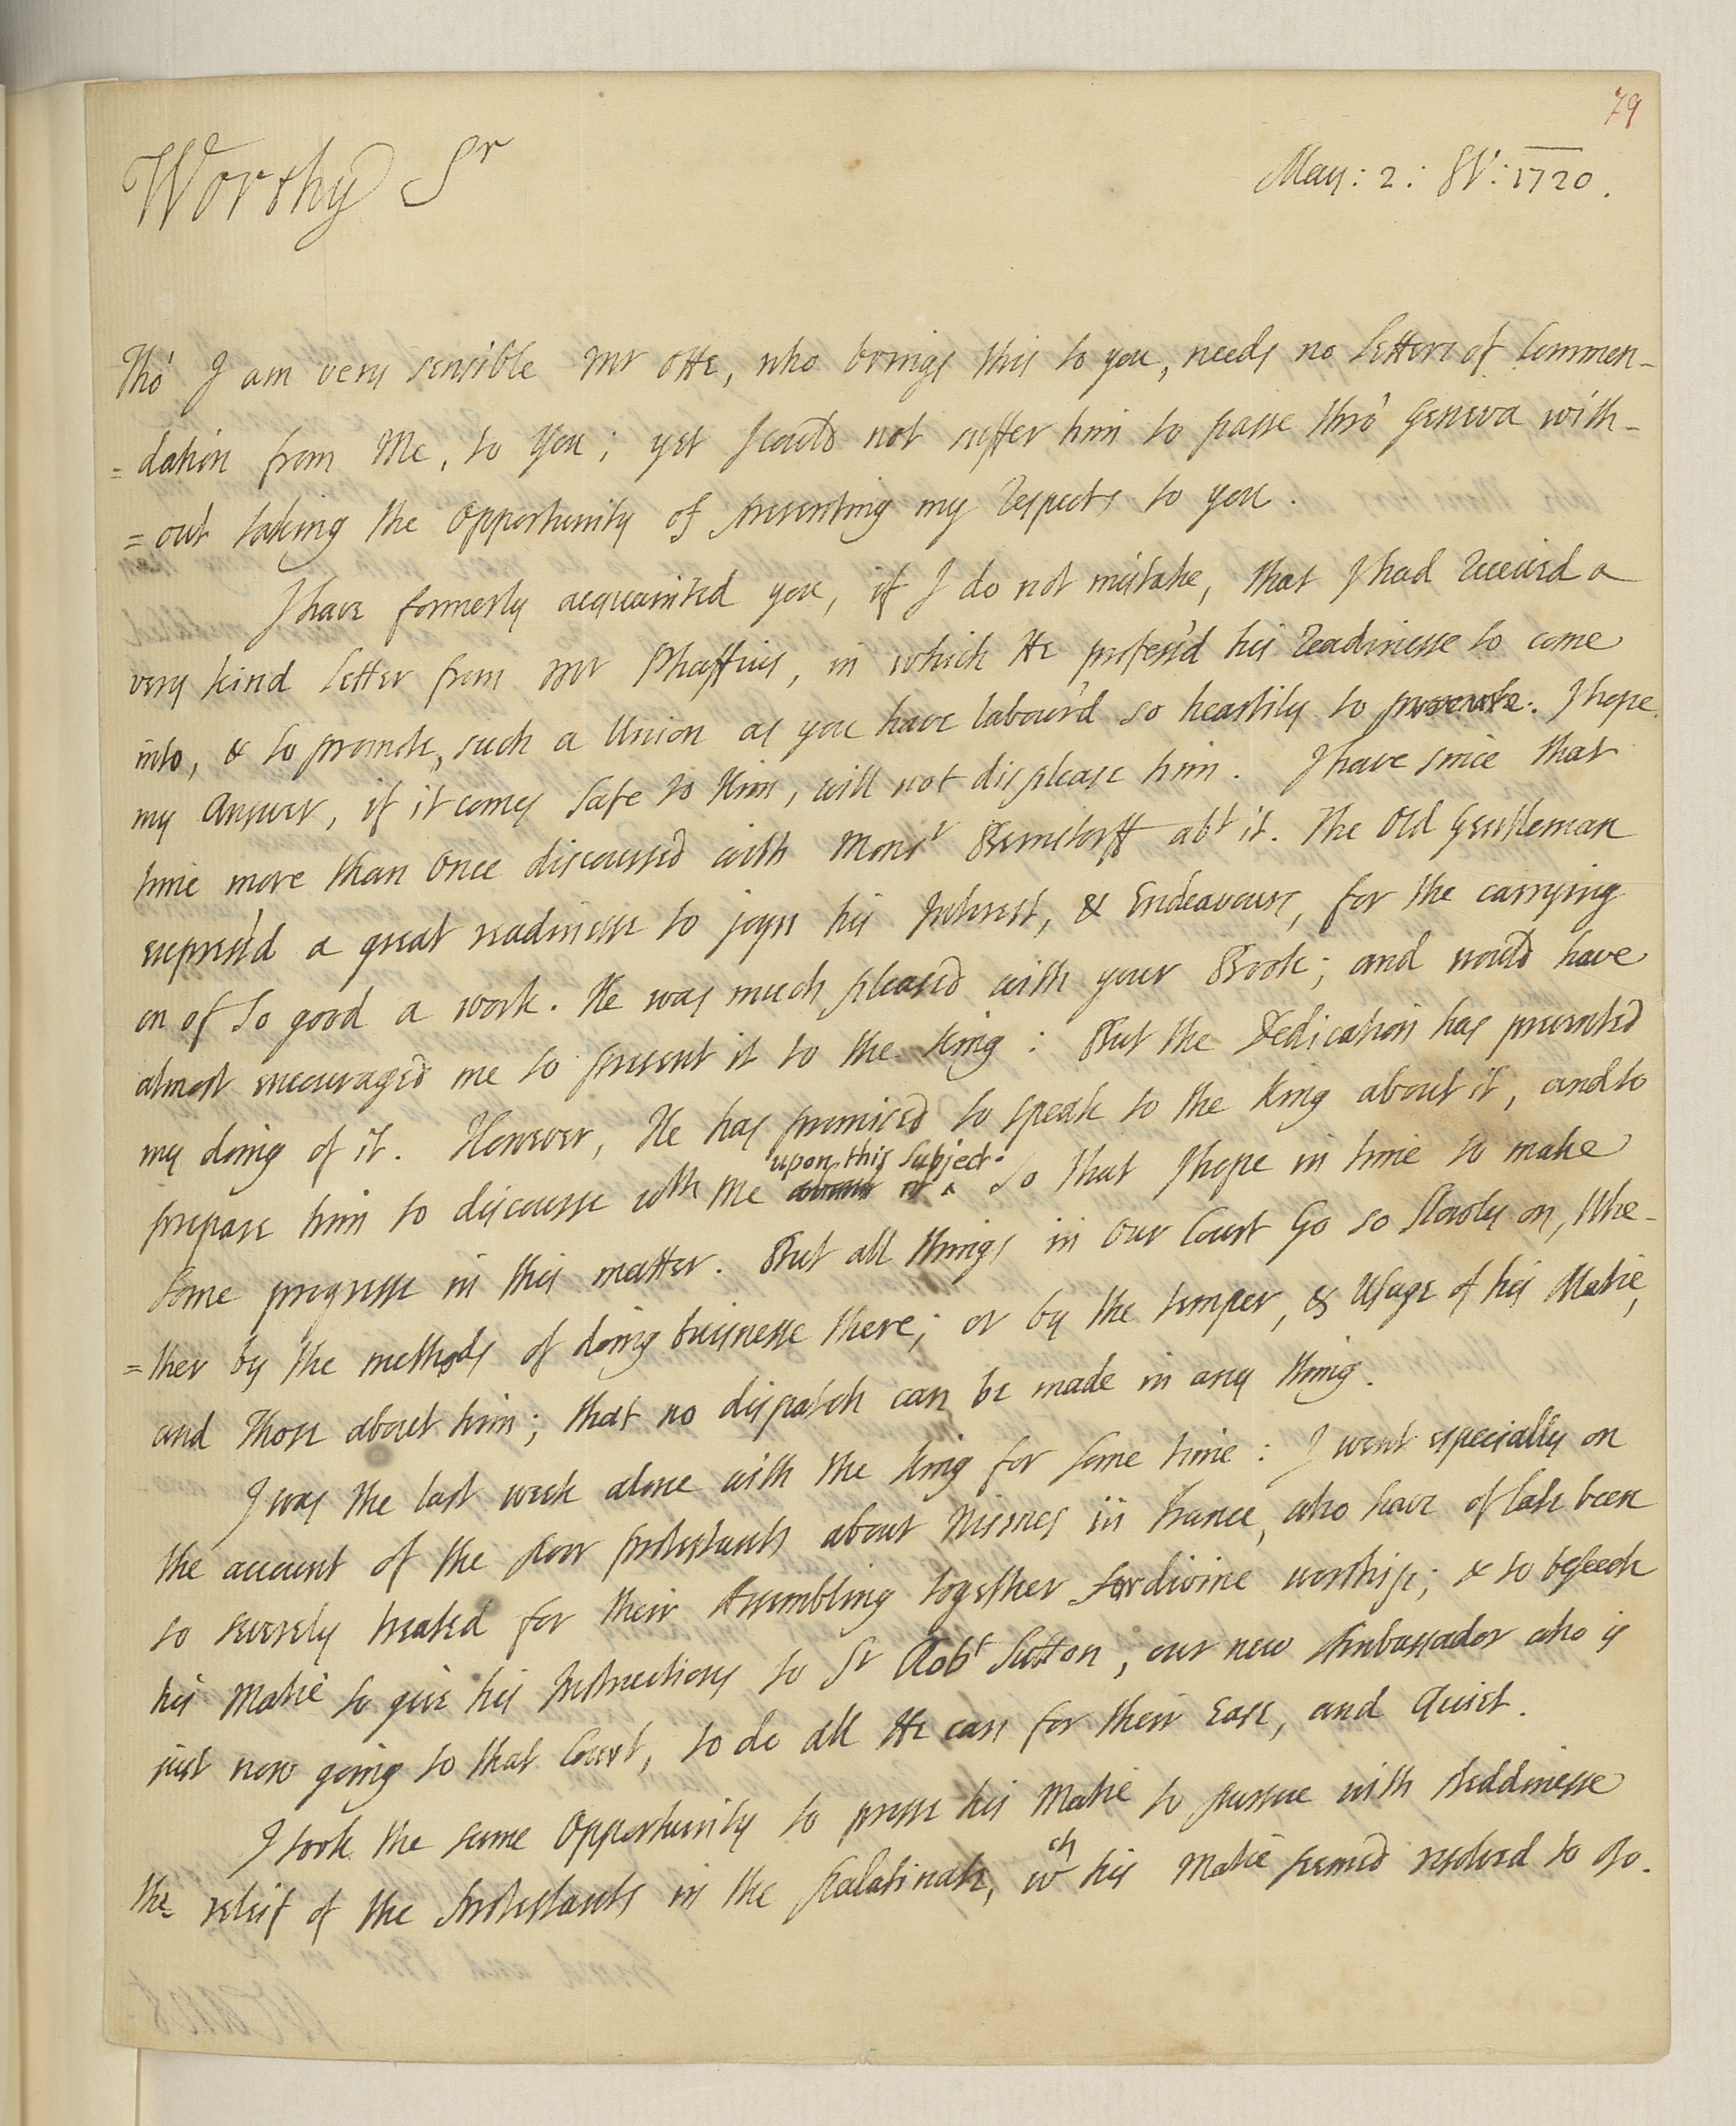 79
Worthy Sr
May: 2: SV: 1720.
Tho' I am very sensible Mr Otte, who brings this to you, needs no Letters of Commen-
=dation from Me, to You; yet I could not suffer him to passe thro' Geneva with-
=out taking the Opportunity of presenting my Respects to you.
I have formerly acquainted you, if I do not mistake, that I had Receiv'd a
very kind Letter from Mr Phaffius, in which He profess'd his Readinesse to come
into, & to promote, such a Union as you have labour'd so heartily to promote. I hope
my Answer, if it comes Safe to Him, will not displease him. I have since that
time more than Once discoursed with Monsr Bernstorff abt it. The Old Gentleman
express'd a great readinesse to joyn his Interest, & Endeavours, for the carrying
on of So good a work. He was much pleased with your Book; and would have
almost encouraged me to present it to the King: But the Dedication has prevented
my doing of it. However, He has promised to speak to the King about it, and to
prepare him to discourse wth Me upon this Subject. So that I hope in time to make
Some progresse in this matter. But all things in Our Court Go so Slowly on, Whe-
=ther by the methods of doing buisnesse there; or by the temper, & Usage of his Matie,
and Those about him; that no dispatch can be made in any thing.
I was the last week alone with the King for Some time: I went especially on
the account of the poor protestants about Nismes in France, who have of late been
so severely treated for their Assembling together for divine worship; & to beseech
his Matie to give his Instructions to Sr Robt Sutton, our new Ambassador who is
just now going to that Court, to do all He can for their Ease, and Quiet.
I took the same Opportunity to presse his Matie to pursue with steddinesse
the releif of the Protestants in the palatinate, wch his Matie seemed resolved to do.